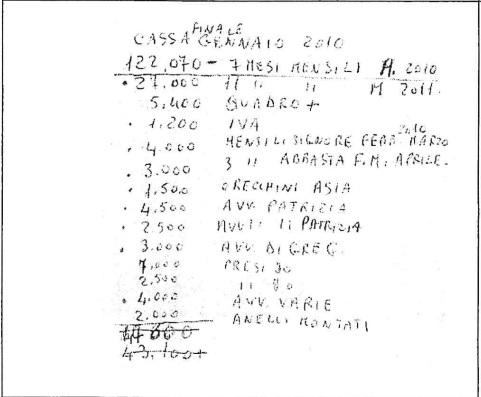 FINALE
CASSA GENNAIO 2010
122,070 - 7 MESI MENSILI A. 2010
• 27.000 11 11 11 M 2011.
5.400 QUADRO +
• 1.200 IVA
2010
• 4.000 MENSILI SIGNORE FEBB. MARZO
• 3.000 3 11 ABBASTA F.M. APRILE.
• 1.500 ORECCHINI ASIA
• 4.500 AVV. PATRIZIA
• 2.500 11 PATRIZIA
• 3.000 AVV. DI GREG.
7,000 PRESI Io
2.500 11 Io
• 4.000 AVV. VARIE
2.000 ANELLI MONTATI
43.100+